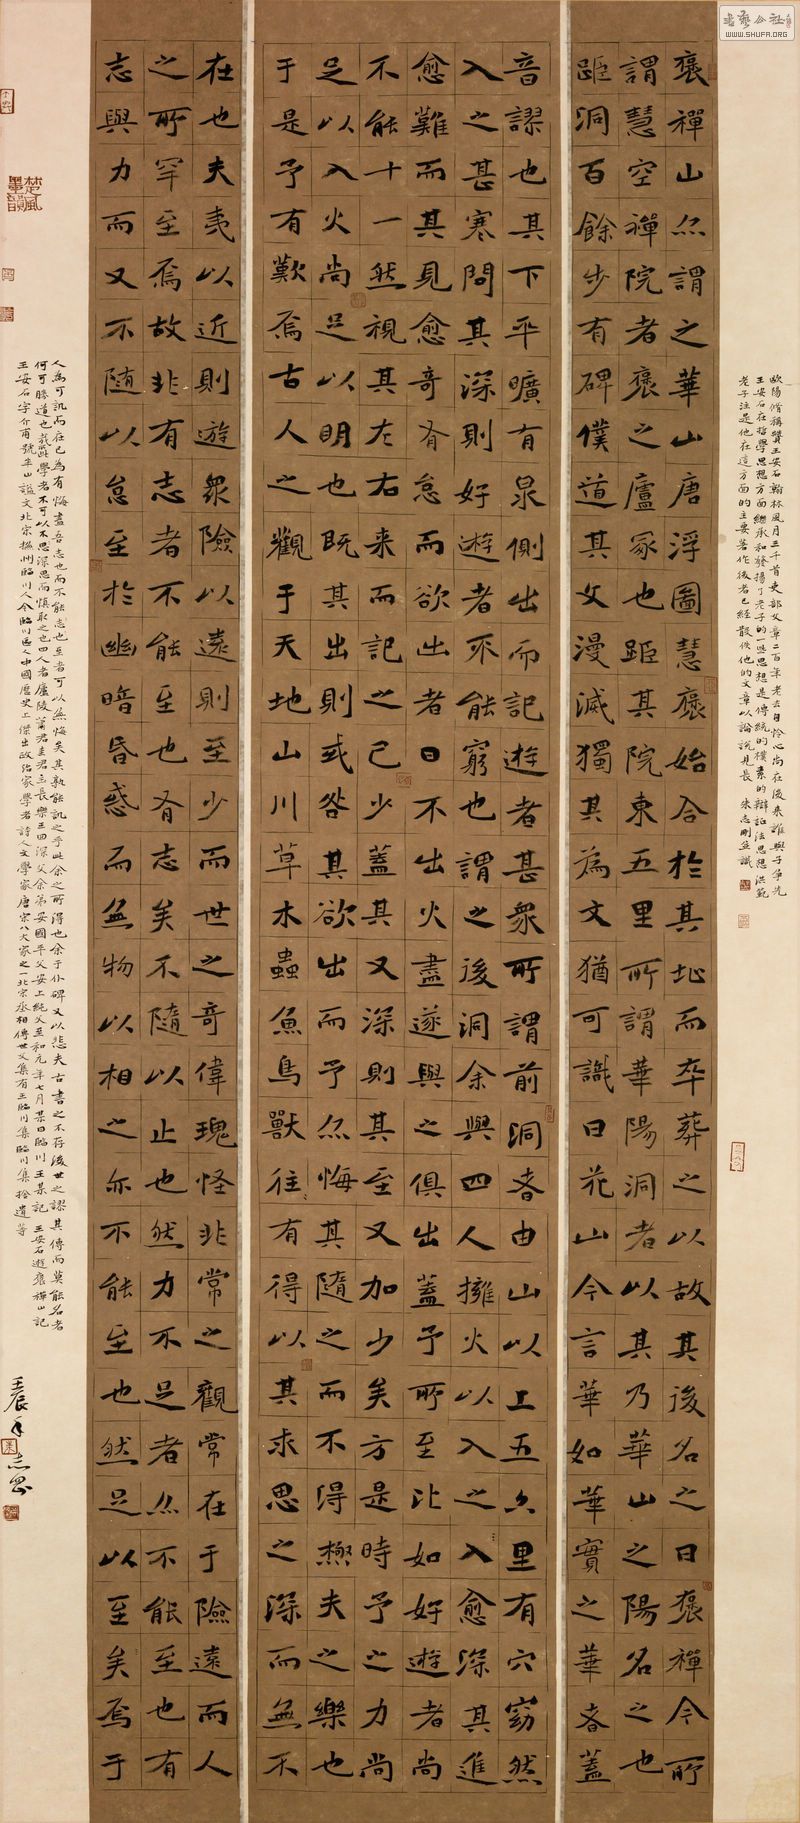 書藝公社
WWW.SHUFA.ORG
褒禪山亦謂之華山唐浮圖慧褒始合於其址而卒葬之以故其後名之曰褒禪今所
謂慧空禪院者褒之廬冢也距其院東五里所謂華陽洞者以其乃華山之陽名之也
距洞百餘步有碑僕道其文漫滅獨其為文猶可識曰花山今言華如華實之華者蓋
音謬也其下平曠有泉側出而記遊者甚衆所謂前洞者由山以上五六里有穴窈然
入之甚寒問其深則好遊者不能窮也謂之後洞余與四人擁火以入之入愈深其進
愈難而其見愈奇有怠而欲出者曰不出火盡遂與之俱出蓋予所至比如好遊者尚
不能十一然視其左右来而記之已少蓋其又深則其至又加少矣方是時予之力尚
足以入火尚足以明也既其出則或咎其欲出而予亦悔其隨之而不得極夫之樂也
于是予有歎焉古人之觀于天地山川草木蟲魚鳥獸往有得以其求思之深而無不
在也夫夷以近則遊衆險以遠則至少而世之奇偉瑰怪非常之觀常在于險遠而人
之所罕至焉故非有志者不能至也有志矣不隨以止也然力不足者亦不能至也有
志與力而又不随以怠至於幽暗昏惑而無物以相之亦不能至也然足以至矣焉于
人為可訊而在己為有悔盡吾志也而不能志也至者可以無悔矣其孰能訊之乎此余之所得也余于仆碑又以悲夫古書之不存後世之謬其傳而莫能名者
何可勝道也哉此學者不可以不思深思而慎取之也四人者廬陵蕭君圭君玉長樂王回深父余弟安國平父安上純父至和元年七月某日臨川王某記 王安石遊褒禪山記
王安石字介甫號半山謚文北宋撫州臨川人今臨川區人中國歷史上傑出政治家學者詩人文學家唐宋八大家之一北宋丞相傳世文集有王臨川集臨川集拾遺等
壬辰年志剛
歐陽修稱贊王安石翰林風月三千首吏部文章二百年老去自憐心尚在後来誰與子争先
王安石在哲學思想方面繼承和發揚了老子的一些思想是傳統的樸素的辯証法思想洪範
老子注是他在這方面的主要著作後者已經散佚他的文章以論說見長 朱志剛並識
楚風墨韻